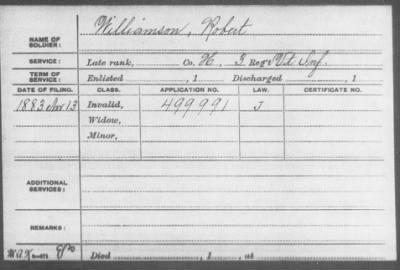 Williamson, Robert
NAME OF SOLDIER:
SERVICE: Late rank, Co. H, 3 Reg't Vt. Inf.
TERM OF SERVICE: Enlisted , 1 Discharged , 1
DATE OF FILING. CLASS. APPLICATION NO. LAW. CERTIFICATE NO.
1883 Nov. 13 Invalid, 499991 J
Widow,
Minor,
ADDITIONAL SERVICES:
REMARKS:
Died , 1 , at